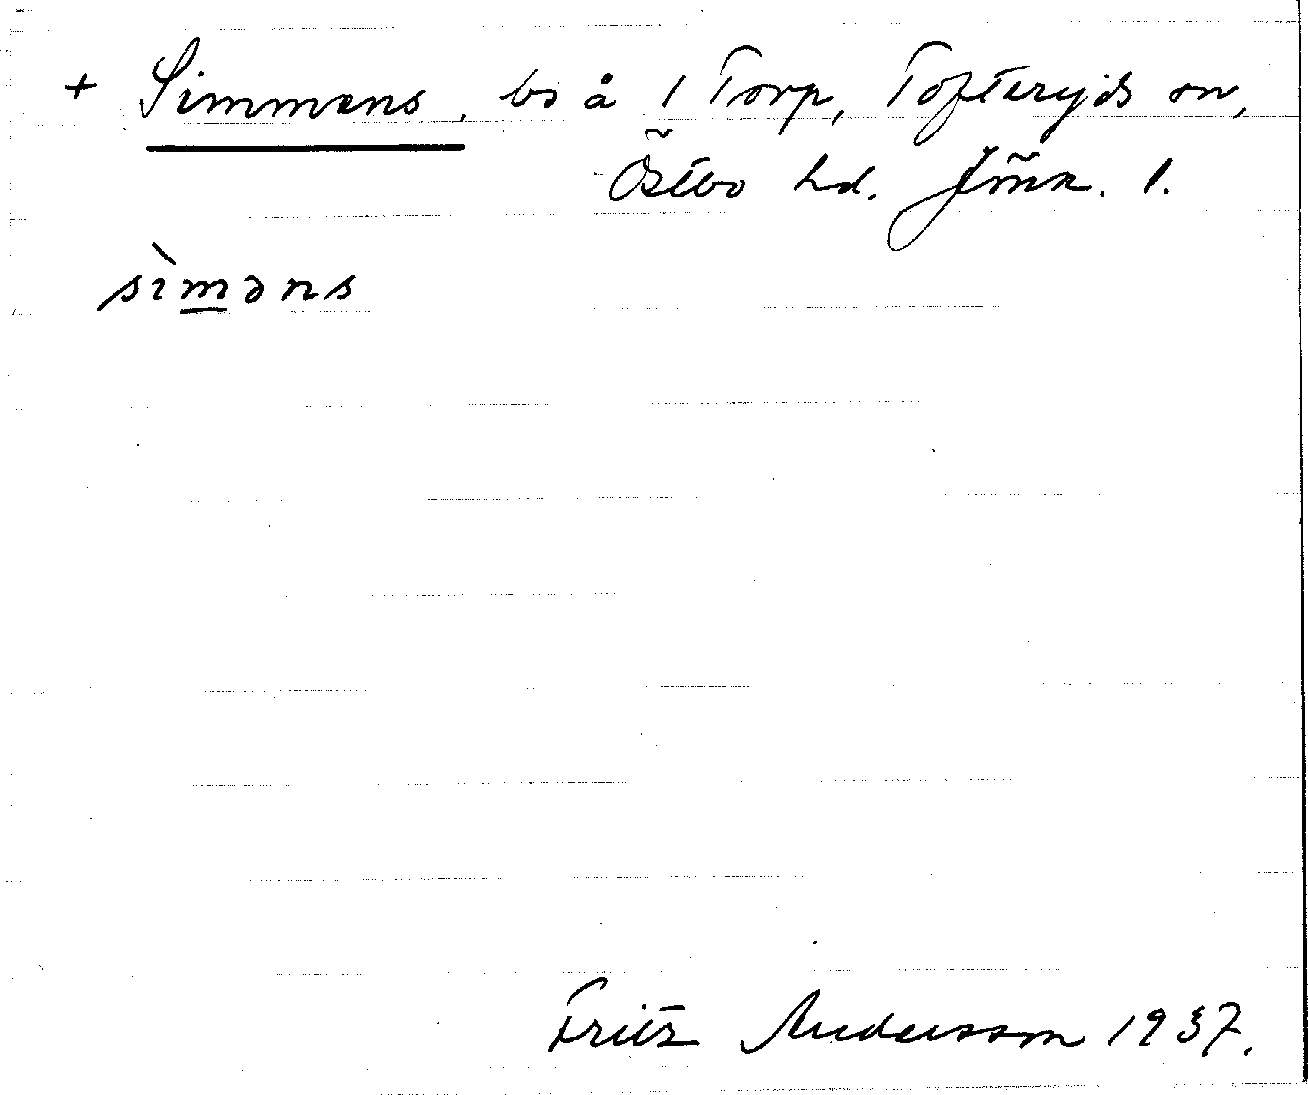 + Simmens, bs å 1 Torp, Tofteryds sn,
Östbo hd. Jönk. l.
sìməns
Fritz Andersson 1937.